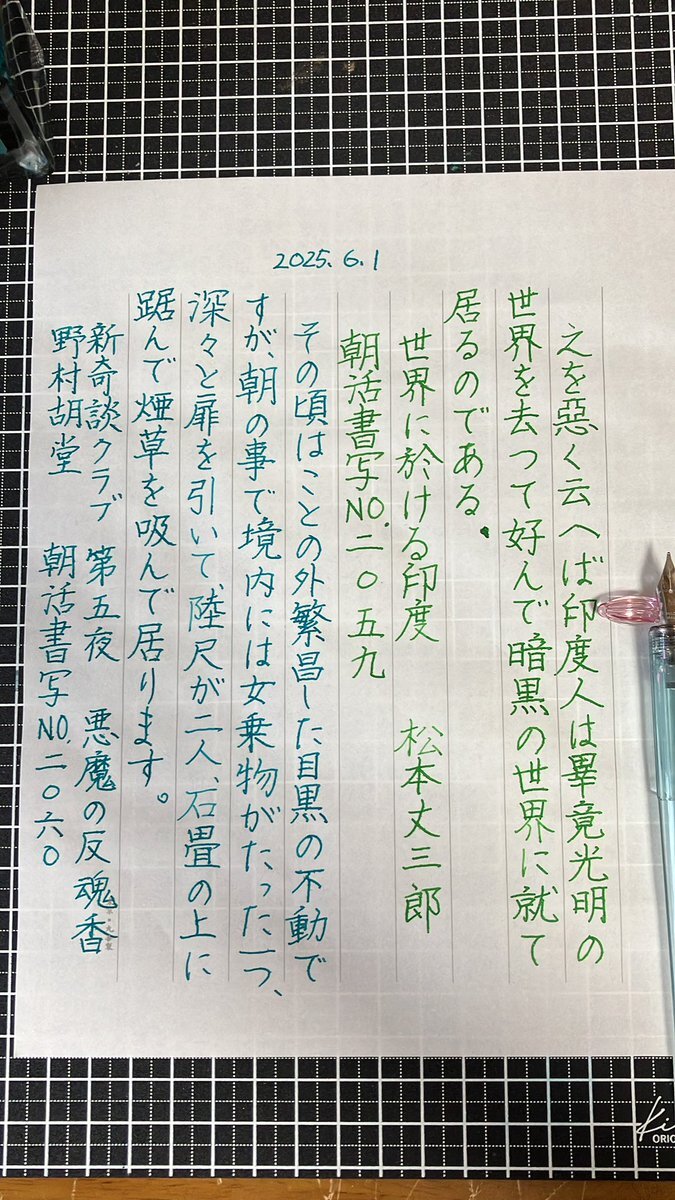 2025.6.1
之を惡く云へば印度人は畢竟光明の
世界を去つて好んで暗黒の世界に就て
居るのである。
世界に於ける印度 松本丈三郎
朝活書写NO.二〇五九
その頃はことの外繁昌した目黒の不動で
すが、朝の事で境内には女乗物がたった一つ、
深々と扉を引いて、陸尺が二人、石畳の上に
踞んで煙草を吸んで居ります。
新奇談クラブ 第五夜 悪魔の反魂香
野村胡堂 朝活書写NO.二〇六〇